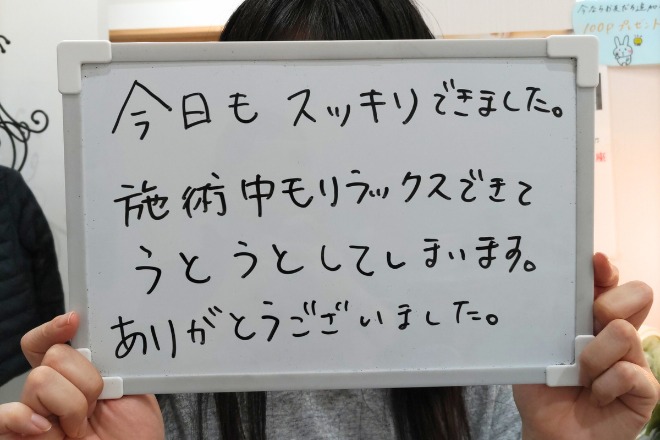 今日も スッキリできました。
施術中もリラックスできて
うとうとしてしまいます。
ありがとうございました。
100Pプレゼント